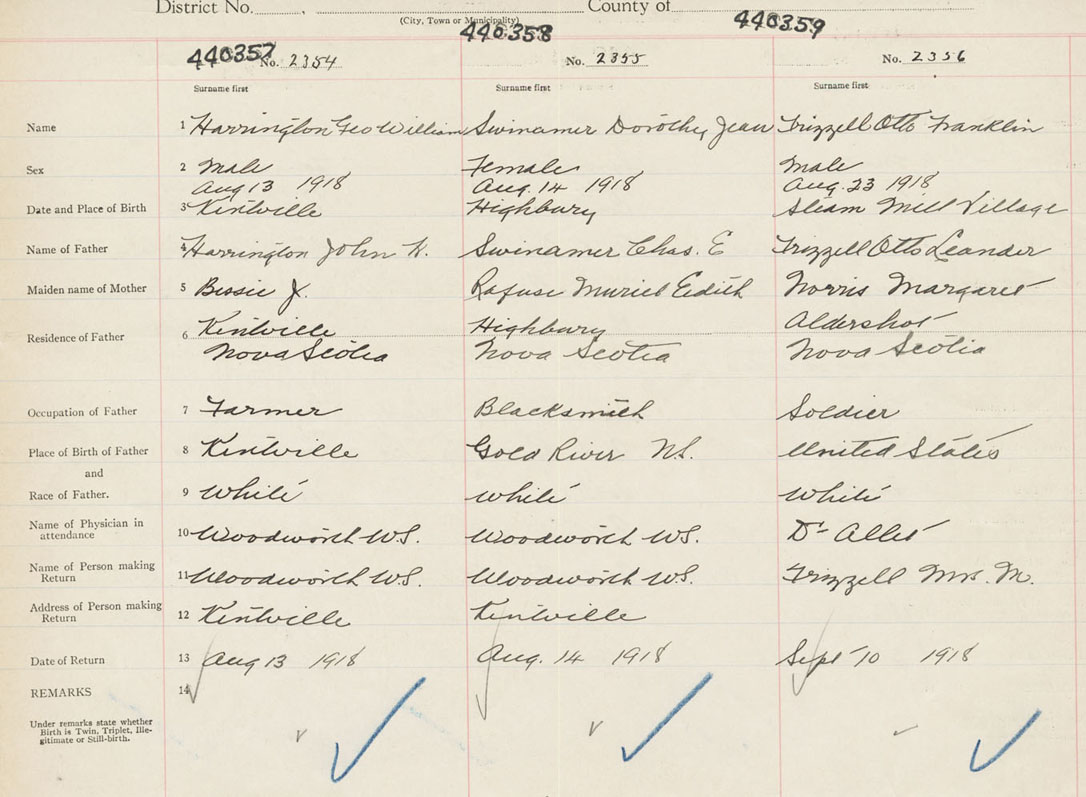 District No. County of
(City, Town or Municipality)
440357 440358 440359
No. 2354 No. 2355 No. 2356
Surname first Surname first Surname first
Name 1 Harrington Geo William Swinamer Dorothy Jean Frizzell Otto Franklin
Sex 2 Male Female Male
Aug 13 1918 Aug. 14 1918 Aug. 23 1918
Date and Place of Birth 3 Kentville Highbury Steam Mill Village
Name of Father 4 Harrington John K. Swinamer Chas. E Frizzell Otto Leander
Maiden name of Mother 5 Bessie J. Rafuse Muriel Edith Norris Margaret
Residence of Father 6 Kentville Highbury Aldershot
Nova Scotia Nova Scotia Nova Scotia
Occupation of Father 7 Farmer Blacksmith Soldier
Place of Birth of Father 8 Kentville Gold River N.S. United States
and
Race of Father. 9 White White White
Name of Physician in
attendance 10 Woodworth W.S. Woodworth W.S. Dr
Name of Person making
Return 11 Woodworth W.S. Woodworth W.S. Frizzell Mrs. M.
Address of Person making
Return 12 Kentville Kentville
Date of Return 13 Aug 13 1918 Aug. 14 1918 Sept 10 1918
REMARKS 14
Under remarks state whether
Birth is Twin, Triplet, Ille-
gitimate or Still-birth.